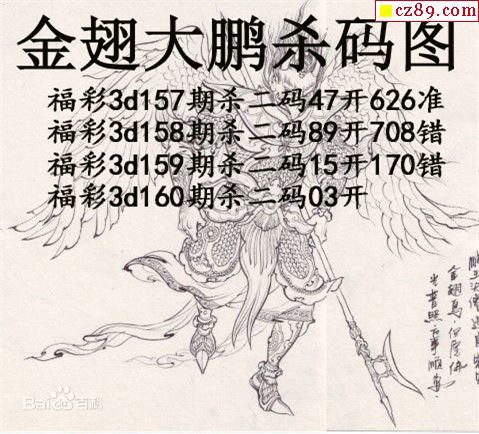 cz89.com
金翅大鹏杀码图
福彩3d157期杀二码47开626准
福彩3d158期杀二码89开708错
福彩3d159期杀二码15开170错
福彩3d160期杀二码03开
Baidu百科